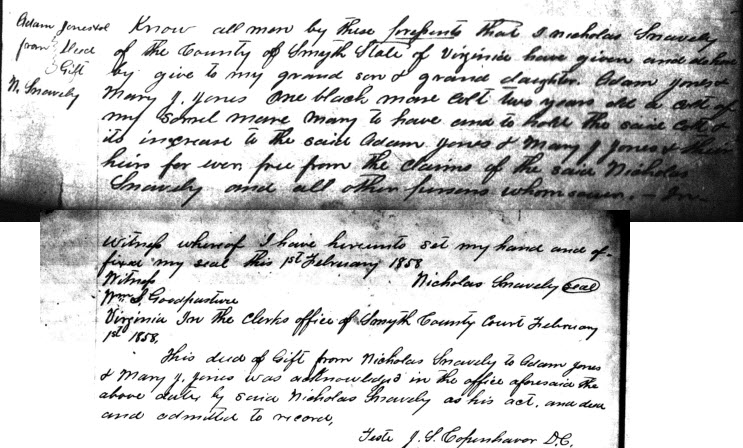 Adam Jones et al
from } Deed
} Gift
N. Snavely
Know all men by these presents that I Nicholas Snavely
of the County of Smyth State of Virginia have given and do here
by give to my grand son & grand daughter Adam Jones &
Mary J. Jones one black mare Colt two years old a colt of
my Sorrel mare Mary to have and to hold the said Colt &
its increase to the said Adam Jones & Mary J Jones & their
heirs for ever free from the claims of the said Nicholas
Snavely and all other persons whomsoever. – In
Witness whereof I have hereunto set my hand and af-
fixed my seal this 1st February 1858
Witness Nicholas Snavely seal
Wm Goodpasture
Virginia In the Clerks office of Smyth County Court February
1st 1858,
This deed of Gift from Nicholas Snavely to Adam Jones
& Mary J. Jones was acknowledged in the office aforesaid the
above date by said Nicholas Snavely as his act, and deed
and admitted to record,
Teste J. S. Copenhaver D.C.